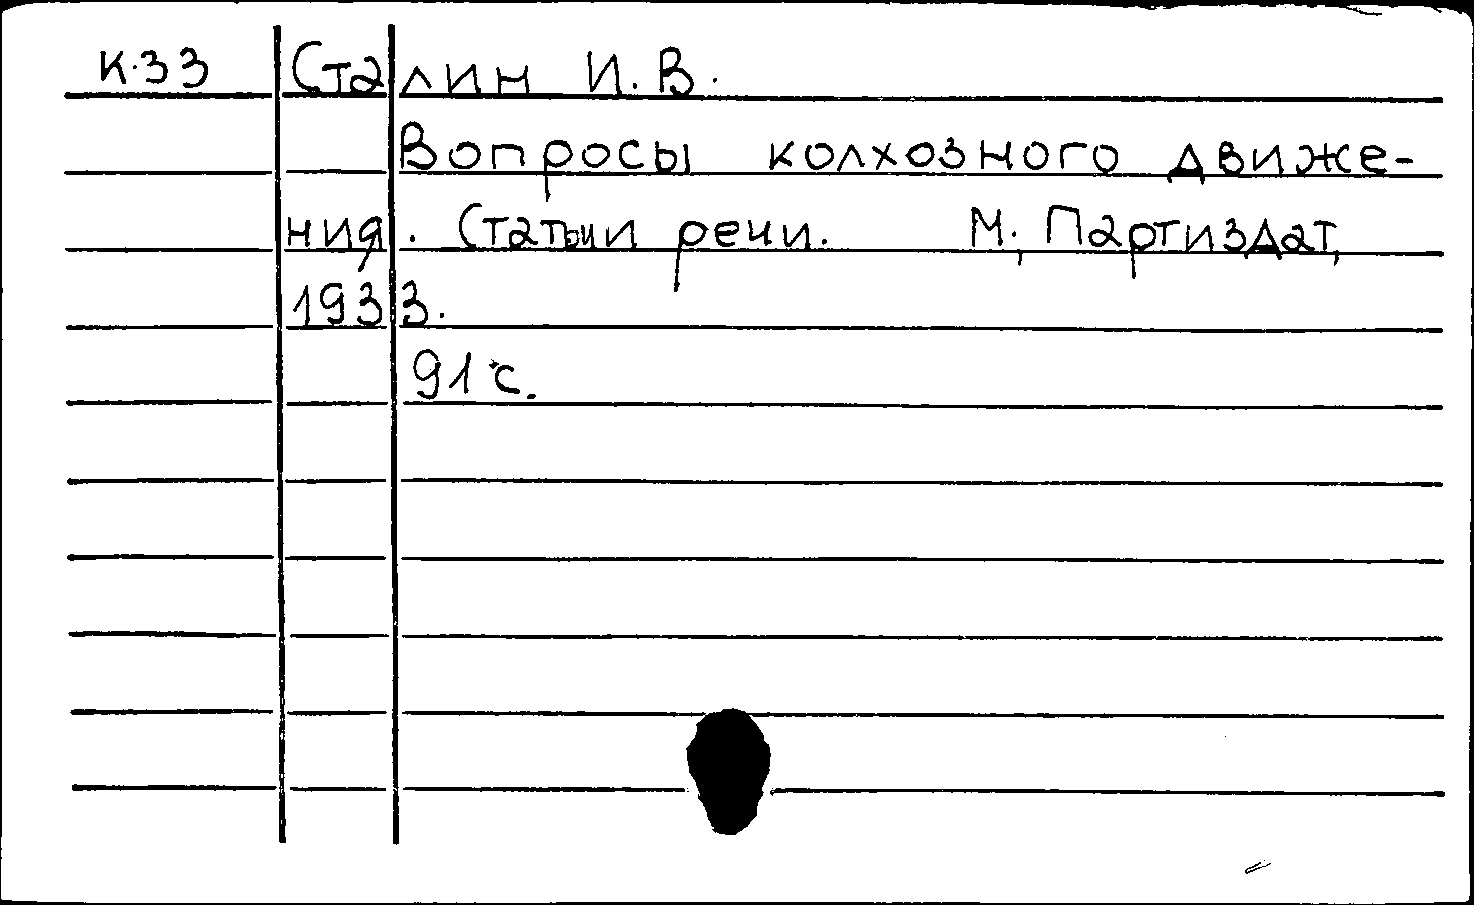 К.33 Сталин И.В.
Вопросы колхозного движе-
ния. Статьи и речи. М., Партиздат,
1933.
91 с.